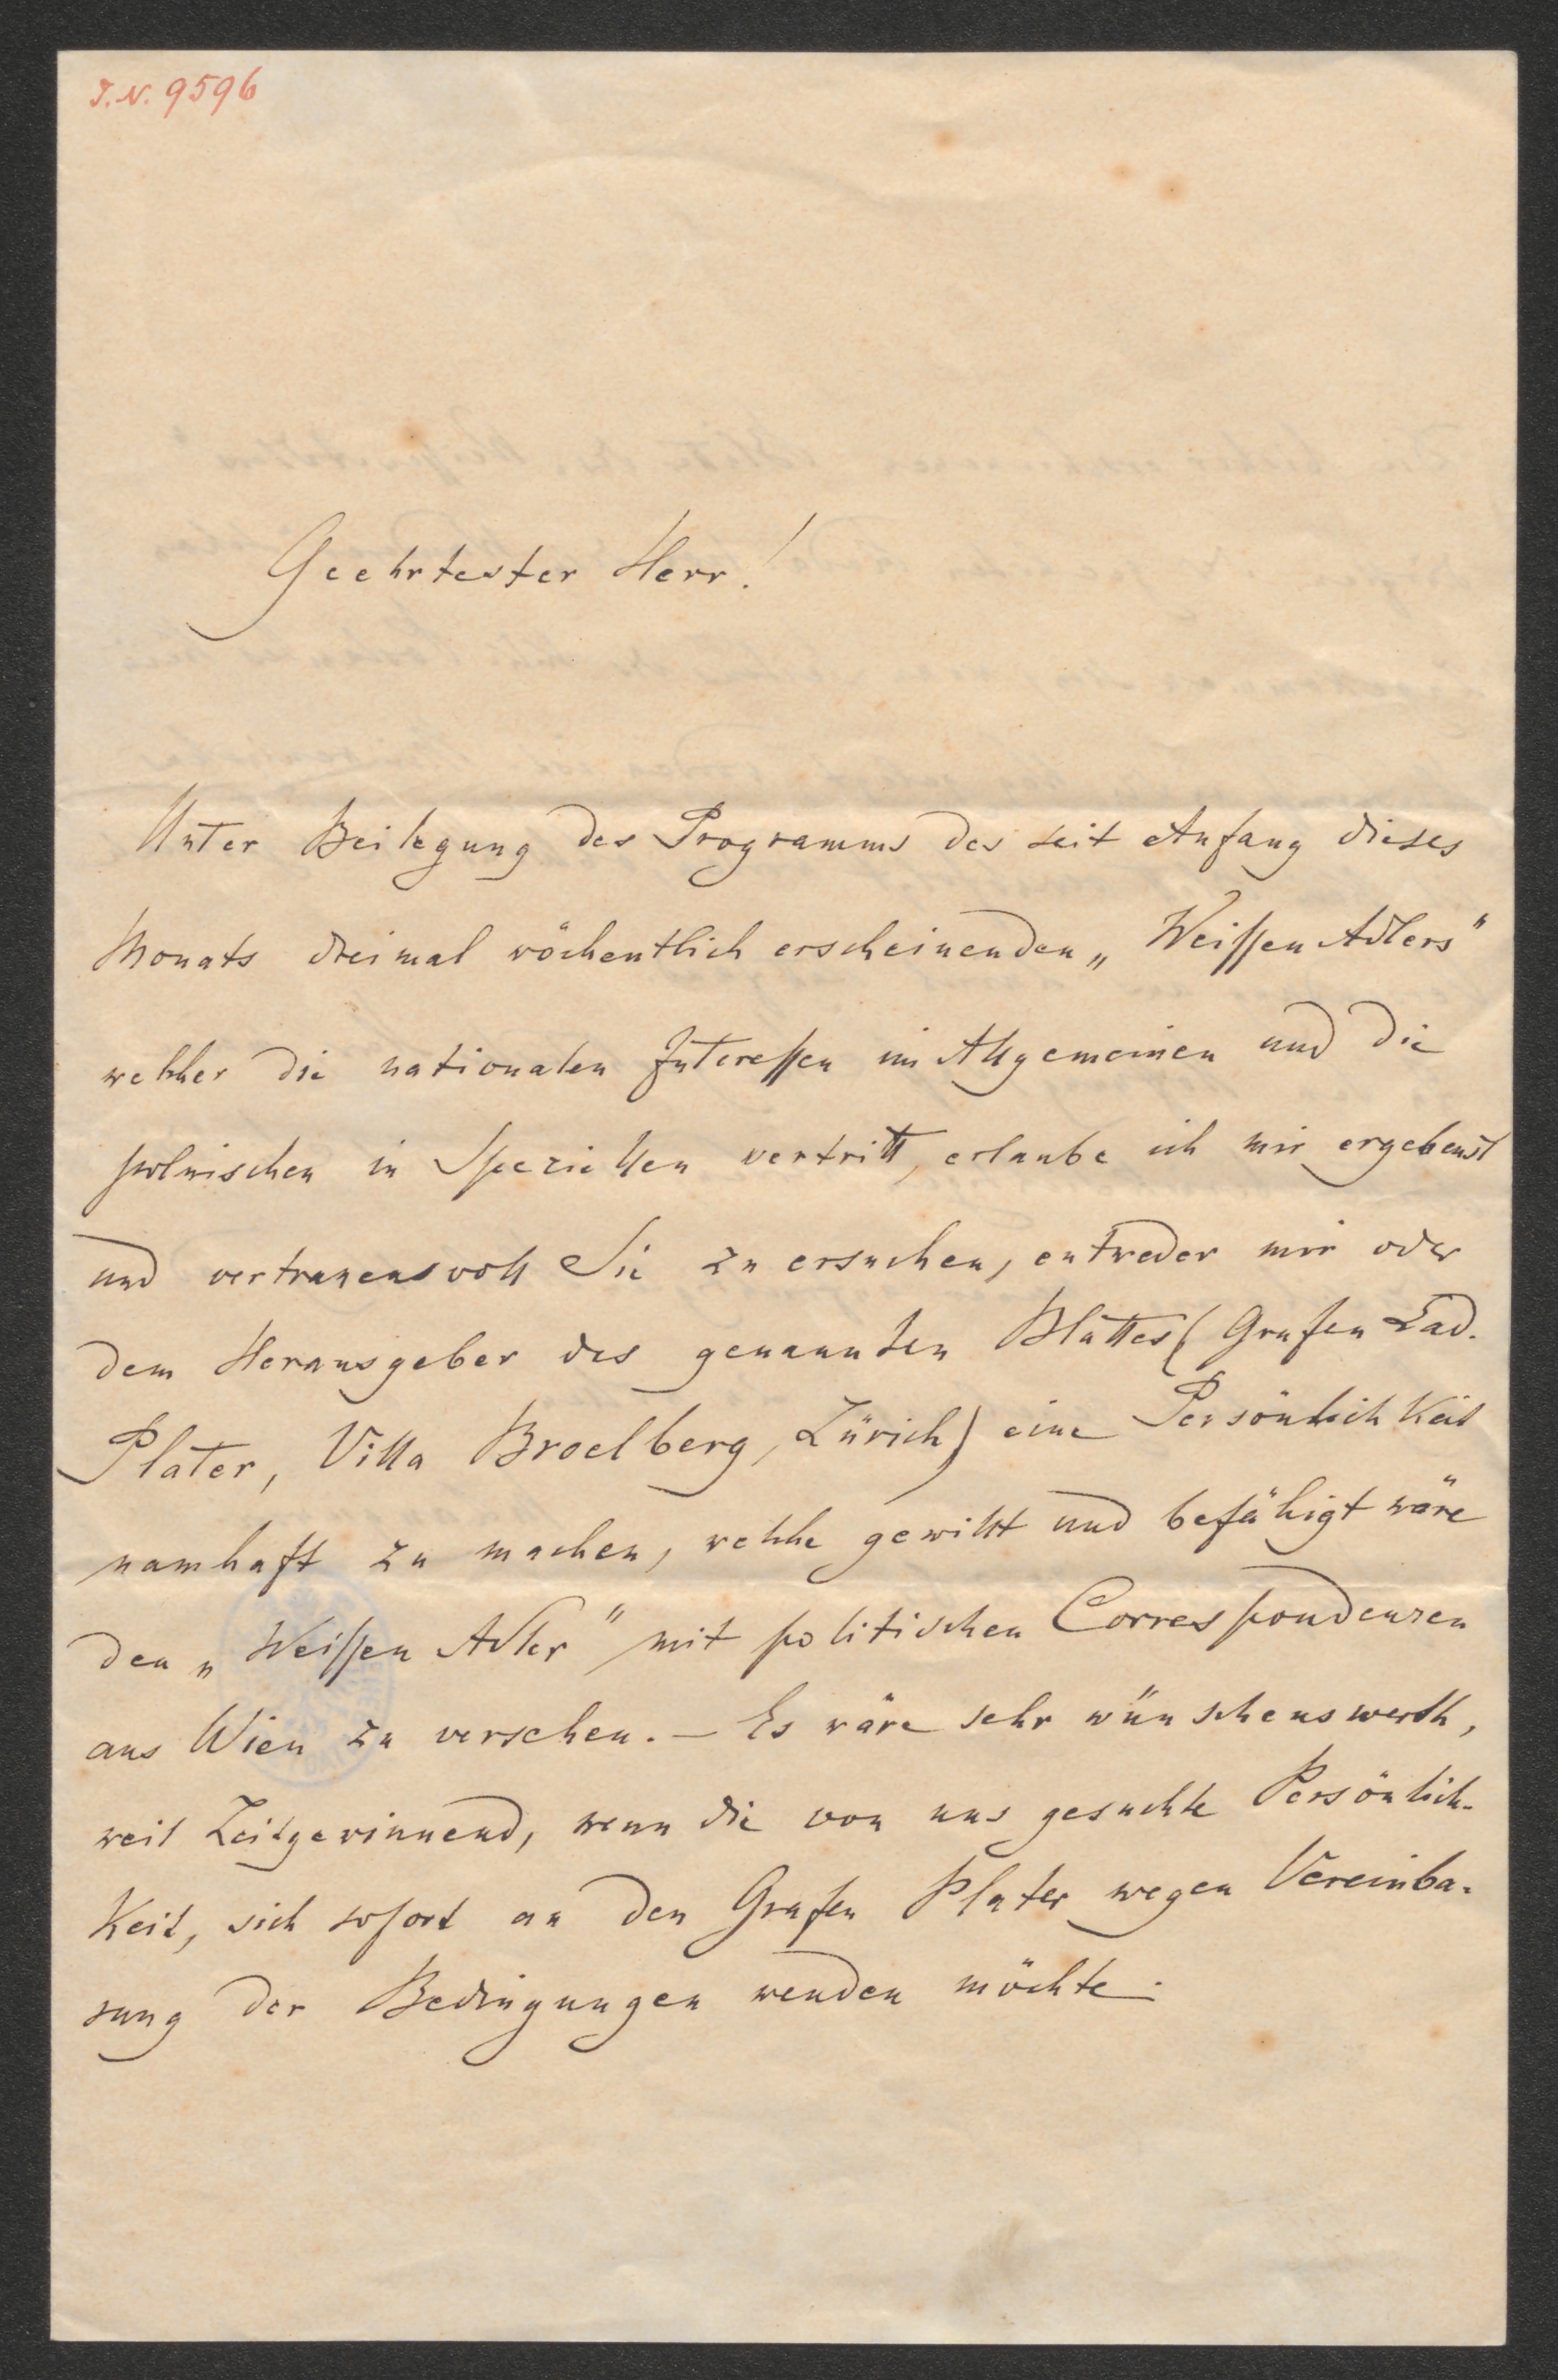 I.N. 9596
Geehrtester Herr!
Unter Beilegung des Programms des seit Anfang dieses
Monats dreimal wöchentlich erscheinenden „Weissen Adlers"
welcher die nationalen Interessen im Allgemeinen und die
polnischen in Speziellen vertritt, erlaube ich mir ergebenst
und vertrauensvoll Sie zu ersuchen, entweder mir oder
dem Herausgeber des genannten Blattes (Grafen Lad.
Plater, Villa Broelberg, Zürich) eine Persönlichkeit
namhaft zu machen, welche gewillt und befähigt wäre
den „Weissen Adler" mit politischen Correspondenzen
aus Wien zu versehen. – Es wäre sehr wünschenswerth,
weil Zeitgewinnend, wenn die von uns gesuchte Persönlich-
keit, sich sofort an den Grafen Plater wegen Vereinba-
rung der Bedingungen wenden möchte.